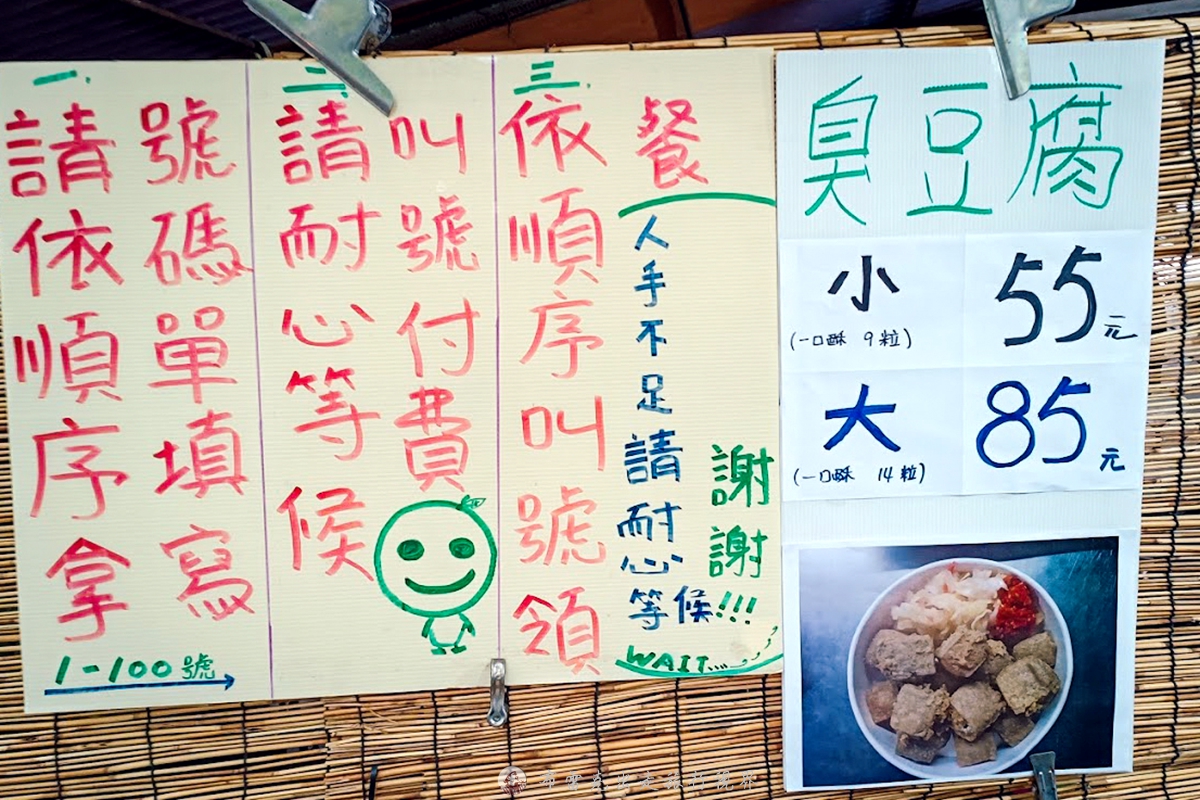 一.
請依順序拿
號碼單填寫
1-100號
二、
請耐心等候
叫號付費
三.
依順序叫號領
餐
人手不足請耐心等候!!!
謝謝
WAIT....
臭豆腐
小 55元
(一口酥 9粒)
大 85元
(一口酥 14粒)